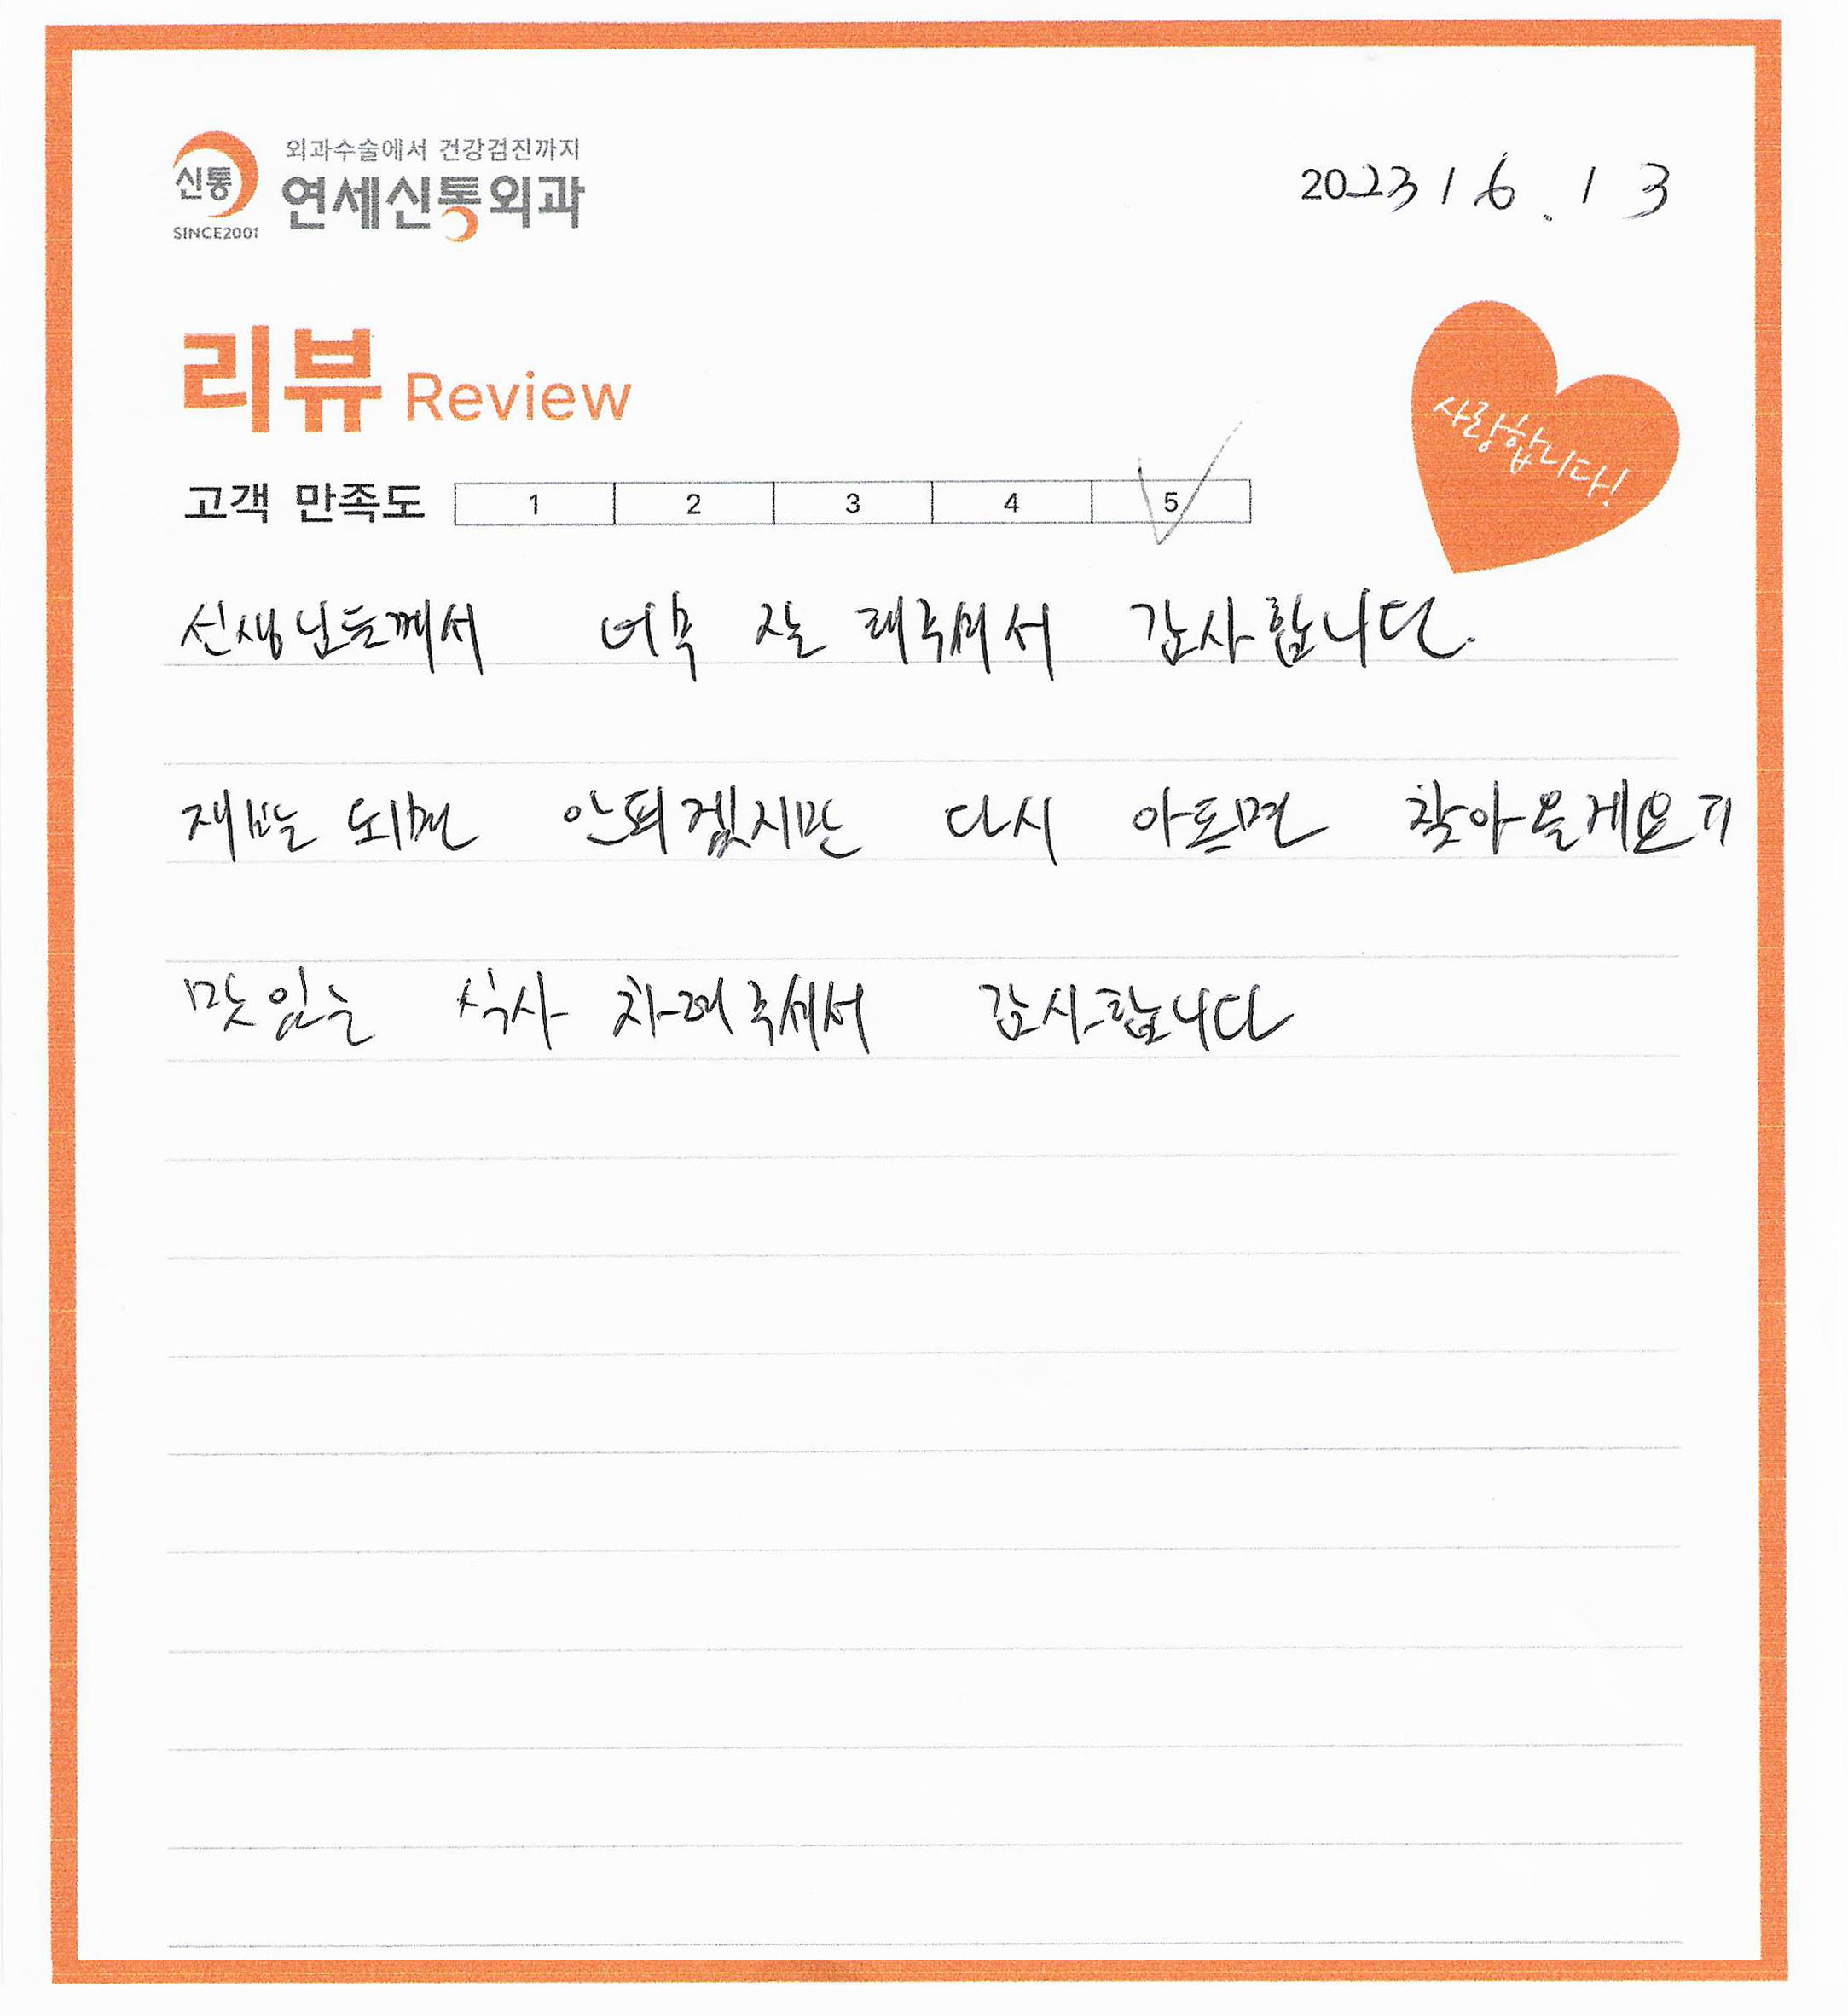 신통
SINCE2001
외과수술에서 건강검진까지
연세신통외과
2023 / 6 . 13
리뷰 Review
사랑합니다!
고객 만족도 1 2 3 4 5
선생님들께서 너무 잘 해주셔서 감사합니다.
재발 되면 안되겠지만 다시 아프면 찾아올게요
맛있는 식사 차려주셔서 감사합니다